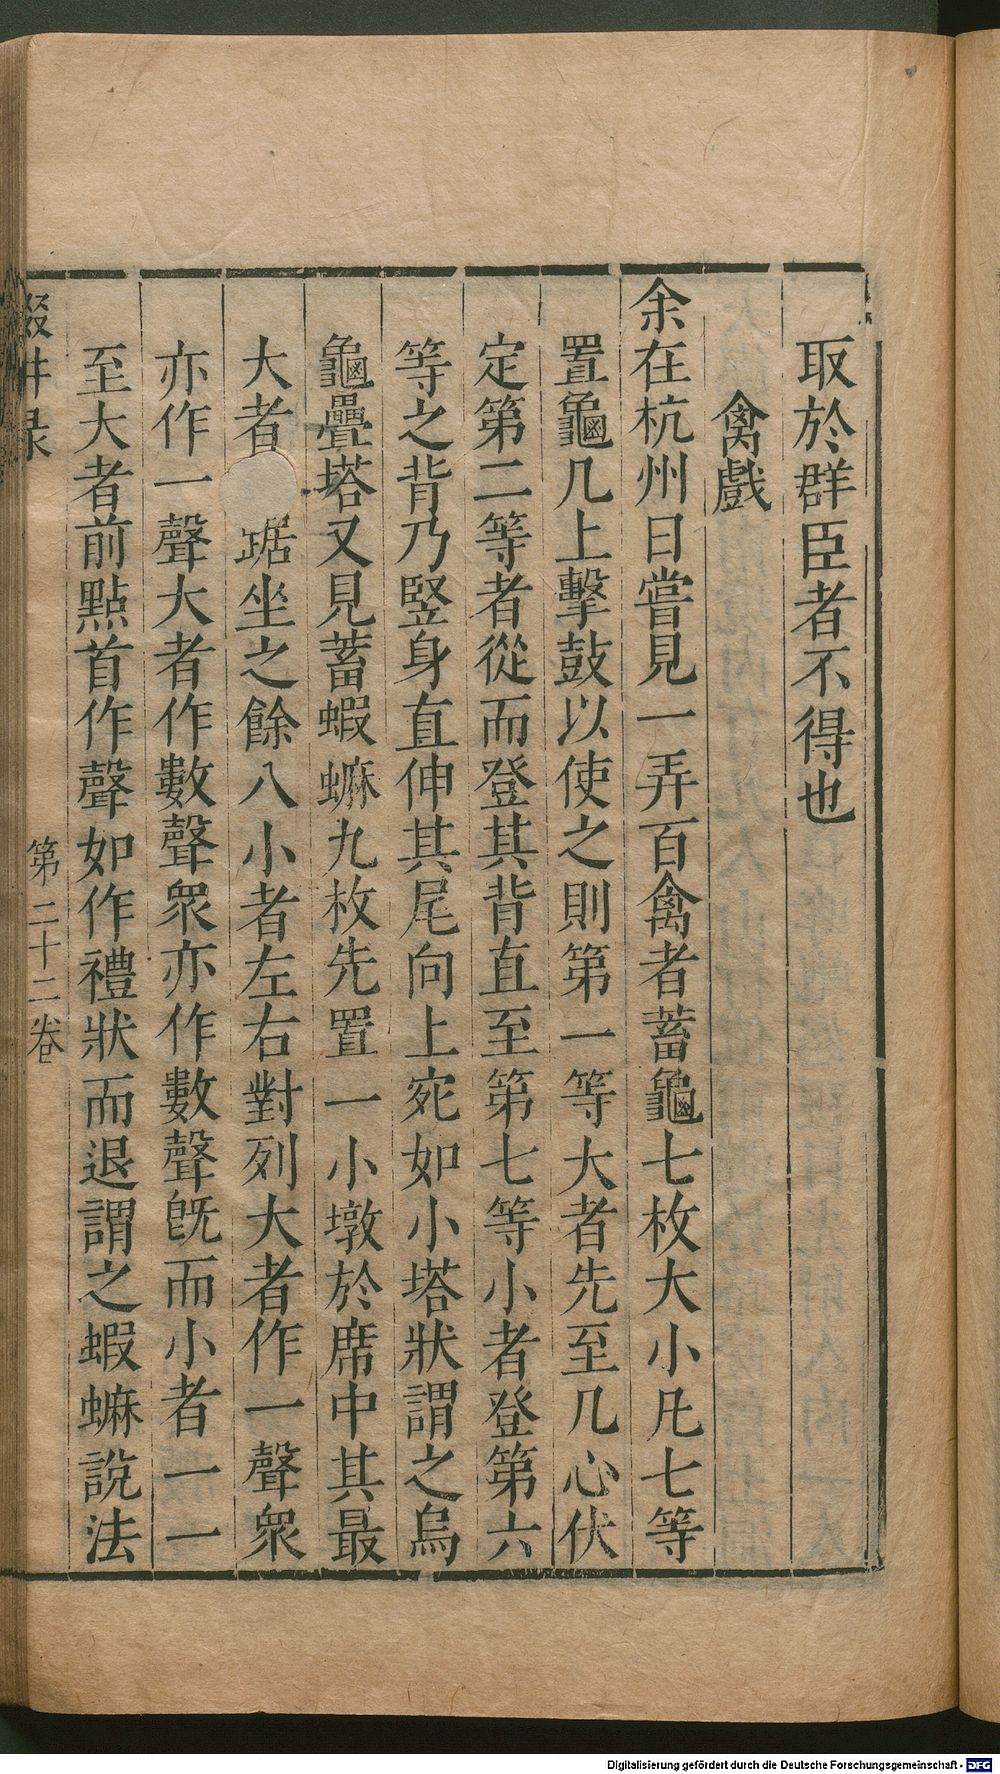 取於群臣者不得也
禽戲
余在杭州日嘗見一弄百禽者蓄龜七枚大小凡七等
置龜几上擊鼓以使之則第一等大者先至几心伏
定第二等者從而登其背直至第七等小者登第六
等之背乃竪身直伸其尾向上宛如小塔狀謂之烏
龜疊塔又見蓄蝦蟆九枚先置一小墩於席中其最
大者踞坐之餘八小者左右對列大者作一聲衆
亦作一聲大者作數聲衆亦作數聲旣而小者一一
至大者前點首作聲如作禮狀而退謂之蝦蟆說法
輟耕录
第二十二卷
Digitalisierung gefördert durch die Deutsche Forschungsgemeinschaft - DFG